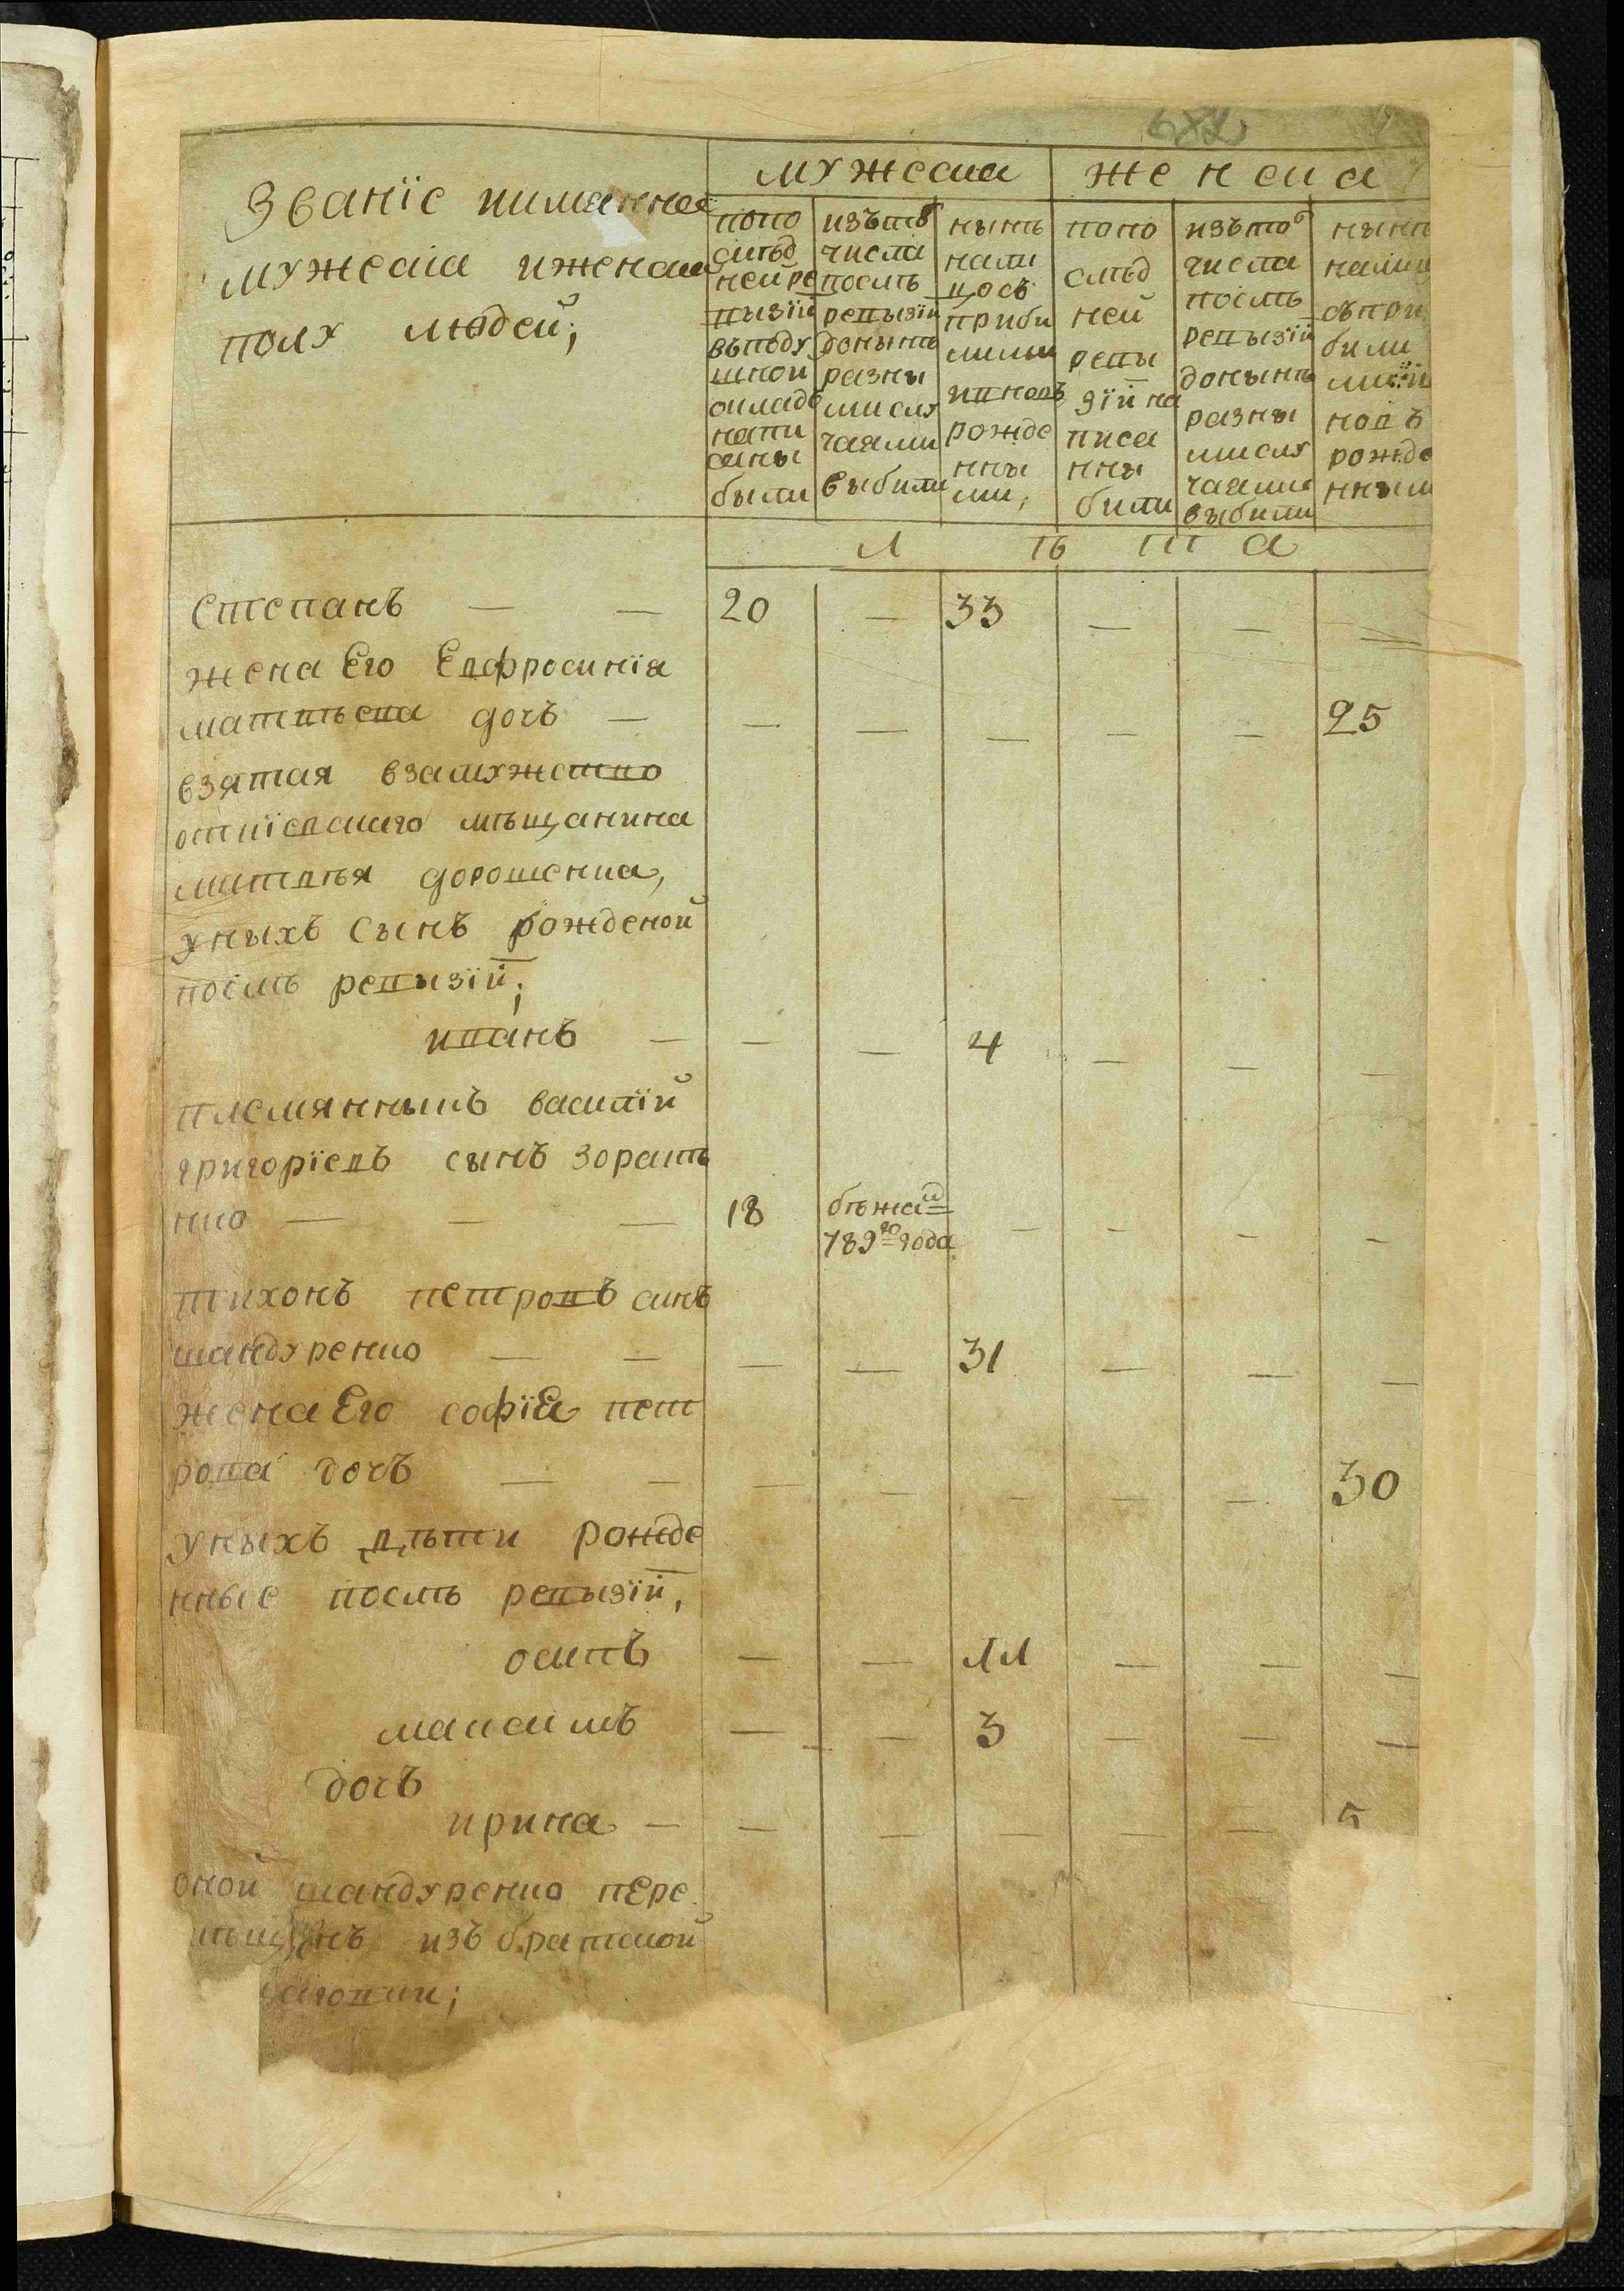 мужеска женска
Званїе имянное
мужеска иженска
полу людей;
попо
слѣд
ней ре
вызїй
въподу
шной
окладъ
напи
саны
были
изъто
числа
послѣ
ревызїй
донынѣ
разны
мислу
чаями
выбили
нынѣ
нали
цосъ
прибы
лыми
ивновъ
рожде
нны
ми,
попо
слѣд
ней
ревы
зїй на
писа
нны
били
изъто
числа
послѣ
ревызїй
донынѣ
разны
мислу
чаями
выбили
нынѣ
налиц
съпри
били
новъ
рожде
нным
Л ѣ т а
степанъ — — 20 — 33 — — —
жена Его Евфросинїя
матвѣева дочъ — — — — — — 25
взятая взамужство
откїевскаго мѣщанина
матвѣя дорошенка,
уныхъ сынъ рожденой
послѣ ревызїй;
иванъ — — — 4 — — —
племянникъ василїй
григорїевъ сынъ
нко — — — 18 бѣжал — — — —
789го года
тихонъ петровъ синъ
шандуренко — — — — 31 — — —
жена Его софїЕа пет
рова дочъ — — — — — — — 30
уныхъ дѣти рожде
нные послѣ ревызїй,
осипъ — — 11 — — —
максимъ — — 3 — — —
дочъ
ирина — — — — — — 5
оной шандуренко пЕре
изъ братской